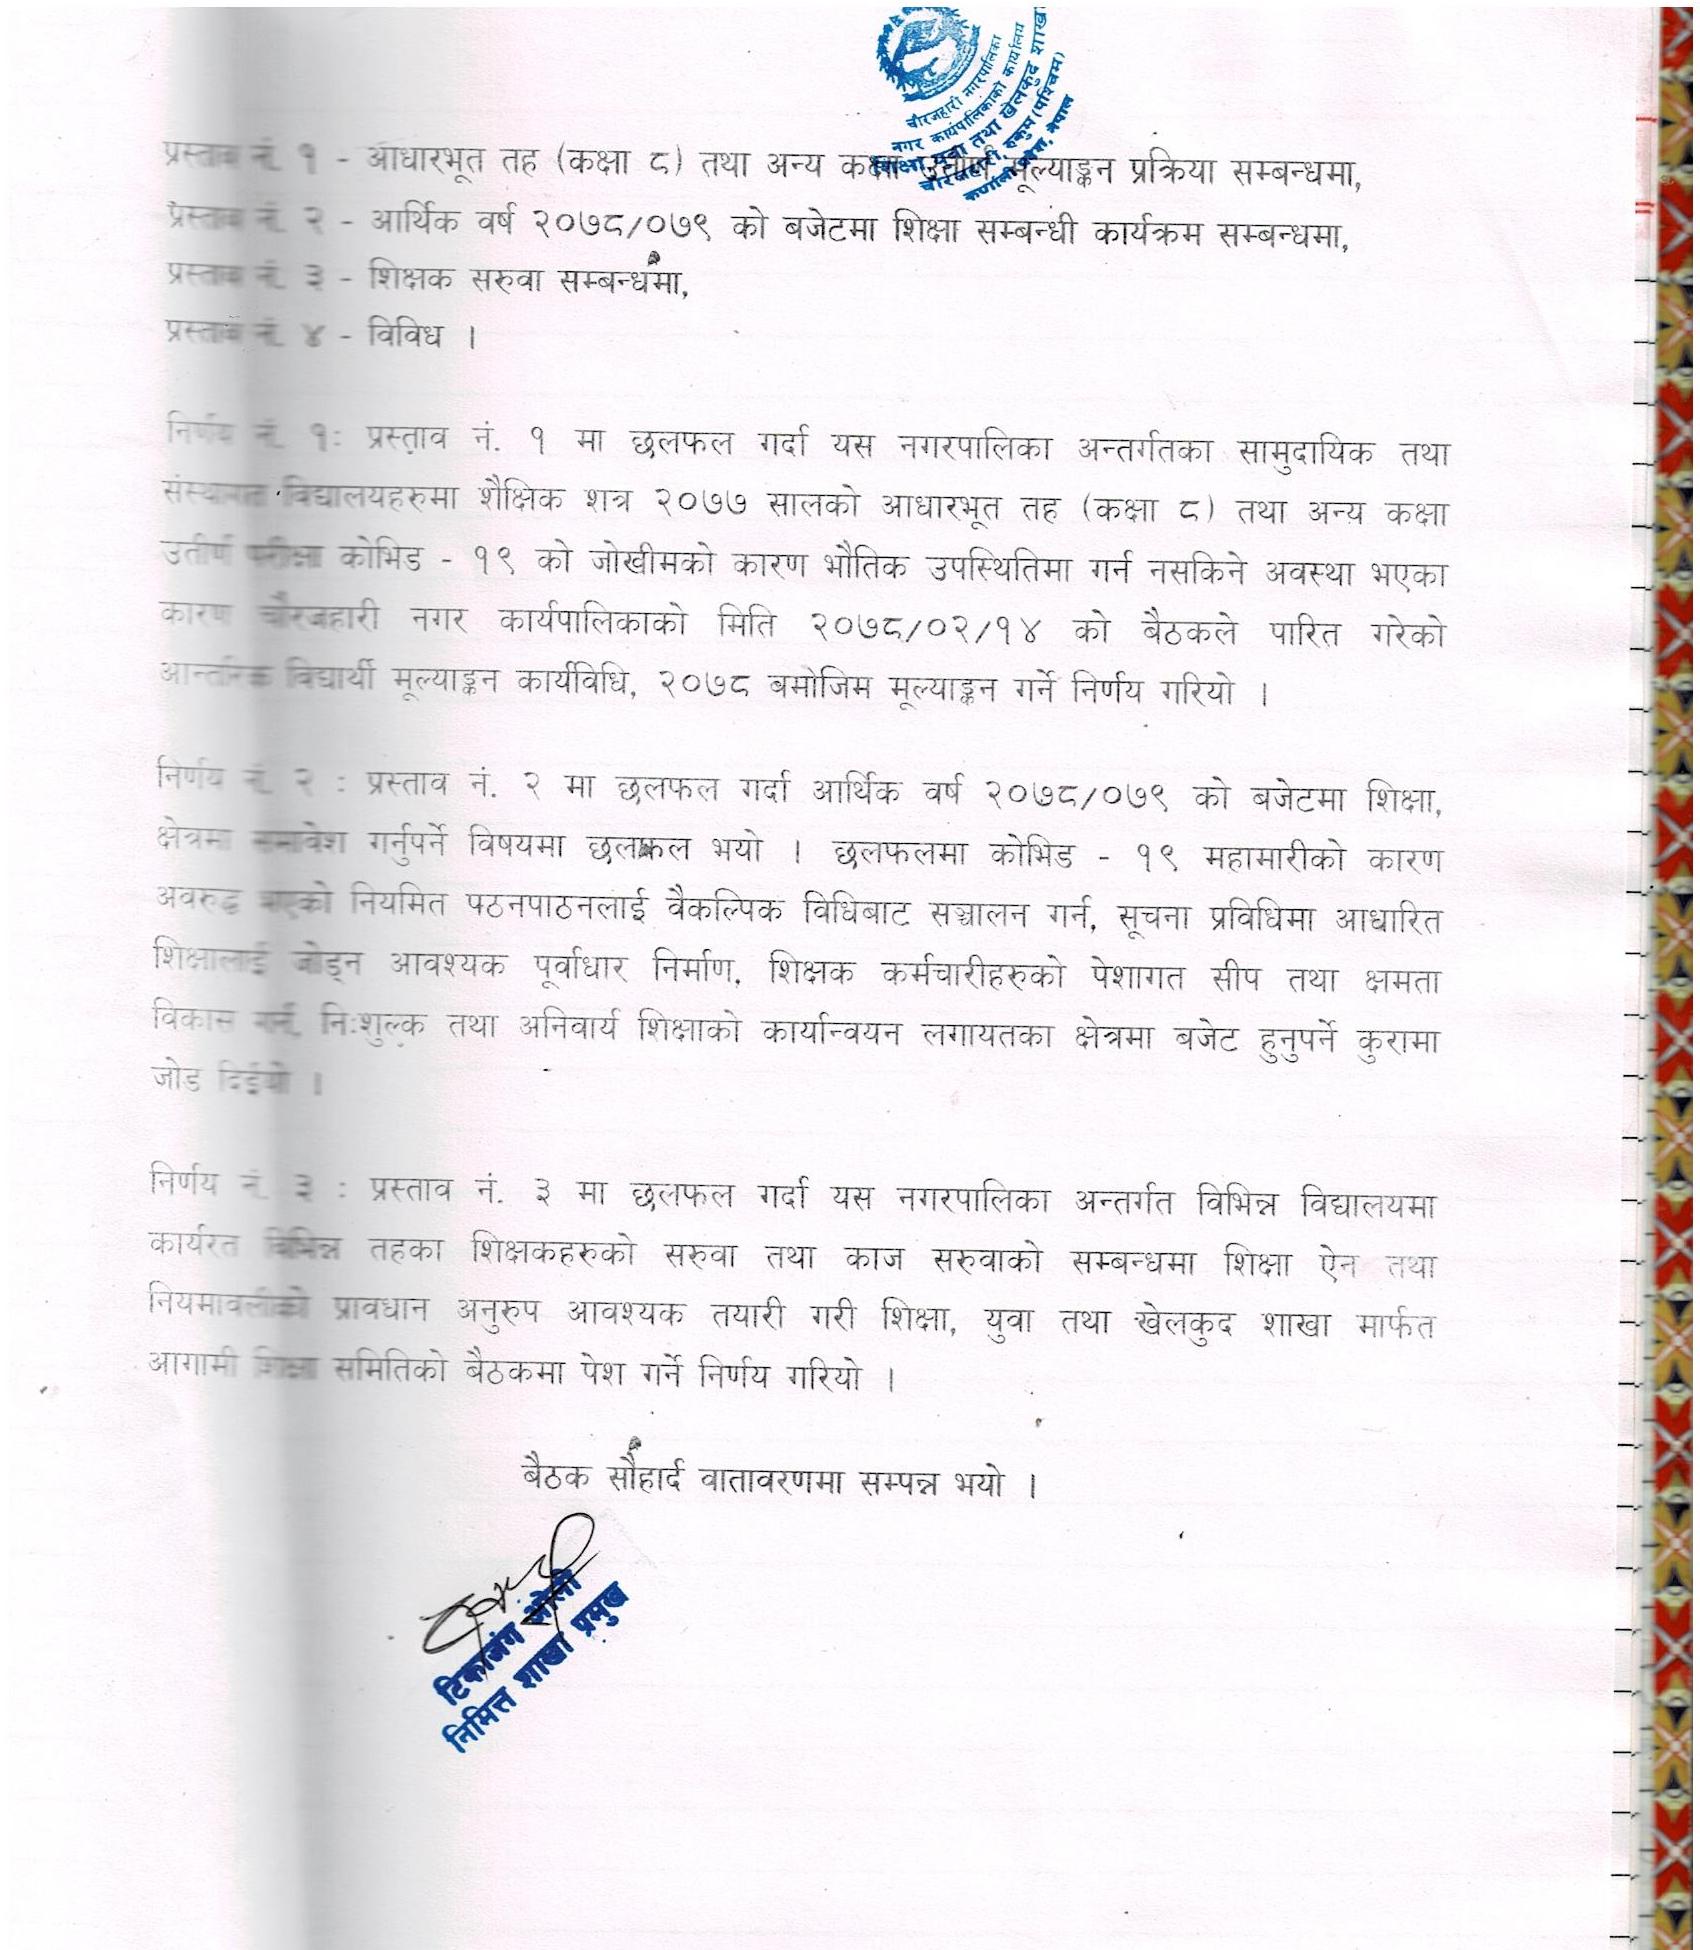 चौरजहारी नगरपालिका
नगर कार्यपालिकाको कार्यालय
शिक्षा युवा तथा खेलकुद शाखा
चौरजहारी, रुकुम (पश्चिम)
कर्णाली प्रदेश, नेपाल
प्रस्ताव नं. १ - आधारभूत तह (कक्षा ८) तथा अन्य कक्षा उतीर्ण मूल्याङ्कन प्रक्रिया सम्बन्धमा,
प्रस्ताव नं. २ - आर्थिक वर्ष २०७८/०७९ को बजेटमा शिक्षा सम्बन्धी कार्यक्रम सम्बन्धमा,
प्रस्ताव नं. ३ - शिक्षक सरुवा सम्बन्धमा,
प्रस्ताव नं. ४ - विविध ।
निर्णय नं. १: प्रस्ताव नं. १ मा छलफल गर्दा यस नगरपालिका अन्तर्गतका सामुदायिक तथा
संस्थागत विद्यालयहरुमा शैक्षिक शत्र २०७७ सालको आधारभूत तह (कक्षा ८) तथा अन्य कक्षा
उतीर्ण परीक्षा कोभिड - १९ को जोखीमको कारण भौतिक उपस्थितिमा गर्न नसकिने अवस्था भएका
कारण चौरजहारी नगर कार्यपालिकाको मिति २०७८/०२/१४ को बैठकले पारित गरेको
आन्तरिक विद्यार्थी मूल्याङ्कन कार्यविधि, २०७८ बमोजिम मूल्याङ्कन गर्ने निर्णय गरियो ।
निर्णय नं. २ : प्रस्ताव नं. २ मा छलफल गर्दा आर्थिक वर्ष २०७८/०७९ को बजेटमा शिक्षा,
क्षेत्रमा समावेश गर्नुपर्ने विषयमा छलफल भयो । छलफलमा कोभिड - १९ महामारीको कारण
अवरुद्ध भएको नियमित पठनपाठनलाई वैकल्पिक विधिबाट सञ्चालन गर्न, सूचना प्रविधिमा आधारित
शिक्षालाई जोड्न आवश्यक पूर्वाधार निर्माण, शिक्षक कर्मचारीहरुको पेशागत सीप तथा क्षमता
विकास गर्न, नि:शुल्क तथा अनिवार्य शिक्षाको कार्यान्वयन लगायतका क्षेत्रमा बजेट हुनुपर्ने कुरामा
जोड दिईयो ।
निर्णय नं. ३ : प्रस्ताव नं. ३ मा छलफल गर्दा यस नगरपालिका अन्तर्गत विभिन्न विद्यालयमा
कार्यरत विभिन्न तहका शिक्षकहरुको सरुवा तथा काज सरुवाको सम्बन्धमा शिक्षा ऐन तथा
नियमावलीको प्रावधान अनुरुप आवश्यक तयारी गरी शिक्षा, युवा तथा खेलकुद शाखा मार्फत
आगामी शिक्षा समितिको बैठकमा पेश गर्ने निर्णय गरियो ।
बैठक सौहार्द वातावरणमा सम्पन्न भयो ।
टिकाजंग ओली
निमित्त शाखा प्रमुख